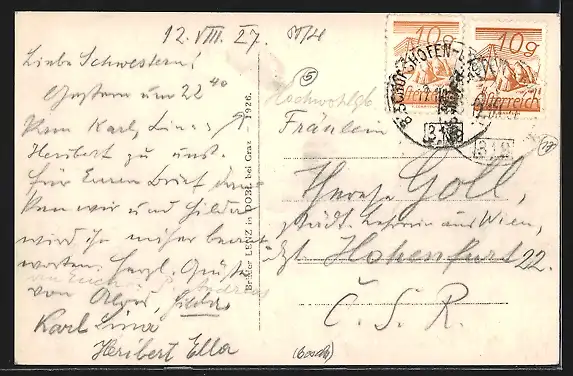 12. VIII. 27.
Liebe Schwestern!
Gestern um 22 40
kam Karl, Lina,
Heribert zu uns.
Für Euren Brief dan-
ken wir und Hilda
wird ihn näher beant-
worten. Herzl. Grüße
von Alois, Hilda
Karl Lina
Heribert Ella
Brüder LENZ in DOBL bei Graz - 1926.
10g 10g
Österreich Österreich
BISCHOFSHOFEN-
Hochwohlgb
Fräulein
Therese Goll,
städt. Lehrerin aus Wien,
dzt. Hohenfurt 22.
Č. S. R.